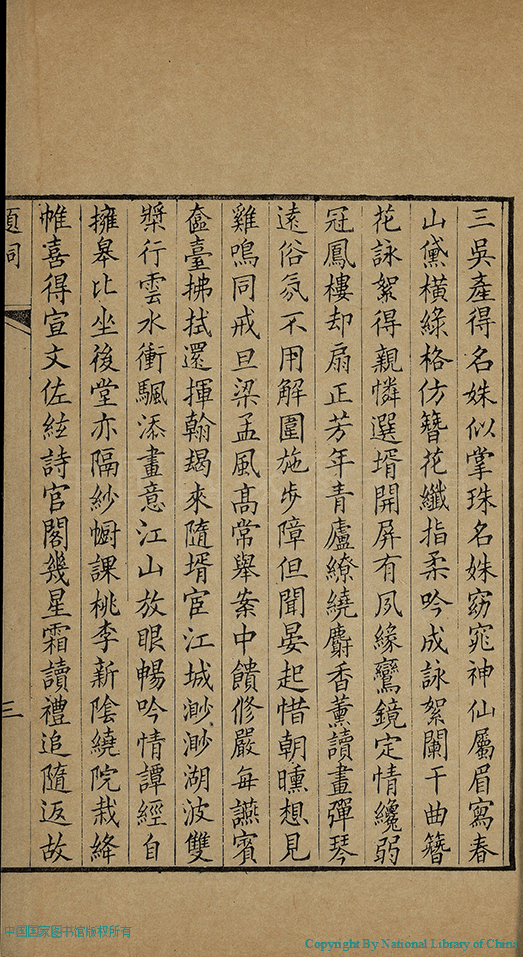 三吳產得名姝似掌珠名姝窈窕神仙屬眉寫春
山黛橫綠格仿簪花纖指柔吟成詠絮闌干曲簪
花詠絮得親憐選壻開屏有夙緣鸞鏡定情纔弱
冠鳳樓却扇正芳年青廬繚繞麝香薰讀畫彈琴
遠俗氛不用解圍施步障但聞晏起惜朝曛想見
雞鳴同戒旦梁孟風高常舉案中饋修嚴每讌賓
奩臺拂拭還揮翰朅來隨壻宦江城渺渺湖波雙
槳行雲水衝颿添畫意江山放眼暢吟情譚經自
擁皋比坐後堂亦隔紗幮課桃李新陰繞院栽絳
帷喜得宣文佐絃詩官閣幾星霜讀禮追隨返故
題詞
三
中国国家图书馆版权所有
Copyright By National Library of China